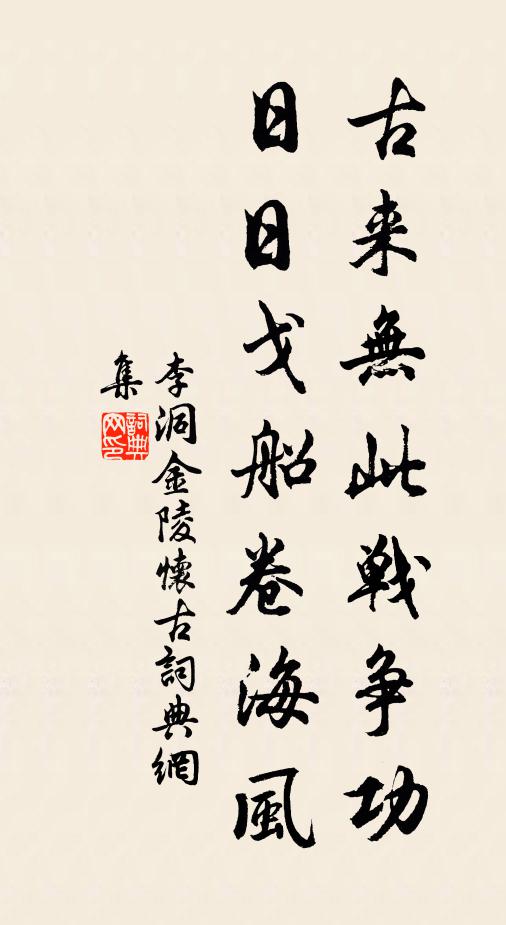 古来無此戦争功
日日戈船卷海風
李洞金陵懷古詞典網
集
詞典网印